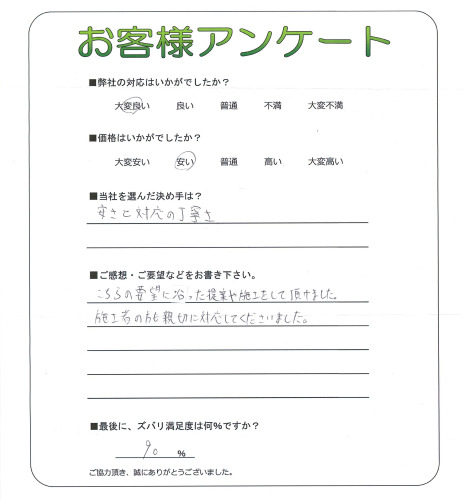 お客様アンケート
■弊社の対応はいかがでしたか?
大変良い 良い 普通 不満 大変不満
■価格はいかがでしたか?
大変安い 安い 普通 高い 大変高い
■当社を選んだ決め手は?
安さと対応の丁寧さ
■ご感想・ご要望などをお書き下さい。
こちらの要望に沿った提案や施工をして頂けました。
施工者の方も親切に対応してくださいました。
■最後に、ズバリ満足度は何%ですか?
90 %
ご協力頂き、誠にありがとうございました。